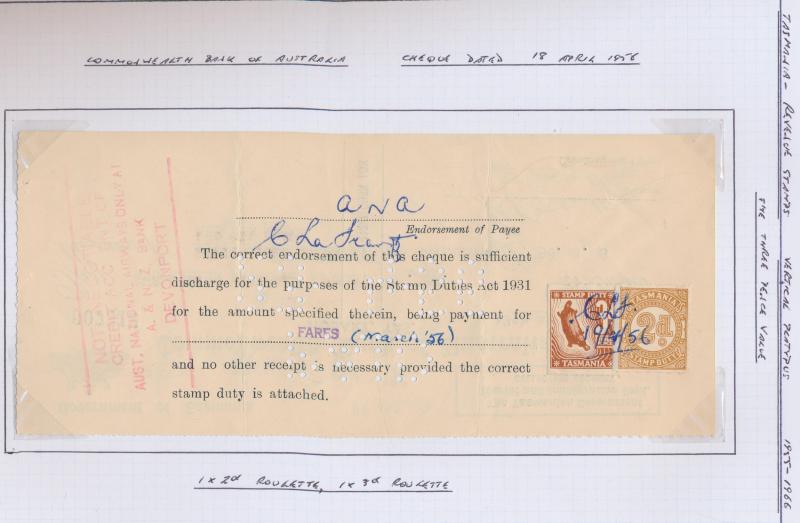 COMMONWEALTH BANK OF AUSTRALIA
CHEQUE DATED 18 APRIL 1956
ANA
Endorsement of Payee
The correct endorsement of this cheque is sufficient
discharge for the purposes of the Stamp Duties Act 1931
for the amount specified therein, being payment for
FARES (March '56)
and no other receipt is necessary provided the correct
stamp duty is attached.
CREDIT ACC.
AUST. NATIONAL AIRWAYS ONLY AT
A. & N. Z. BANK
DEVONPORT
STAMP DUTY
TASMANIA
TASMANIA
2d
STAMP DUTY
19/4/56
1 x 2d ROULETTE, 1 x 3d ROULETTE
TASMANIA - REVENUE STAMPS VERTICAL PLATYPUS 1955-1966
THE THREE PENCE VALUE